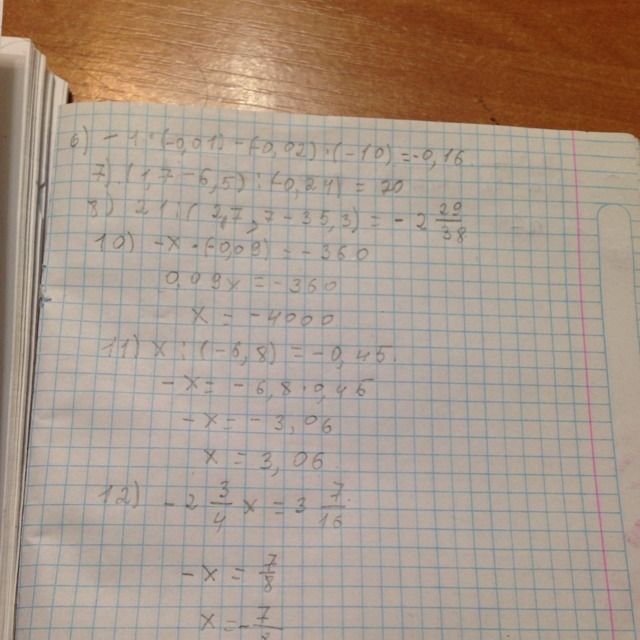 6) - 1 : (-0,01) - (-0,02) : (-10) = -0,16
7) (1,7 - 6,5) : (-0,24) = 20
8) 21 : ( 2,7 , 7 - 35,3) = - 2 20/38
10) -x · (-0,09) = -360
0,09x = -360
x = -4000
11) x : (-6,8) = -0,45
-x = -6,8 · 0,45
-x = -3,06
x = 3,06
12) -2 3/4 x = 3 7/16
-x = 7/8
x = - 7